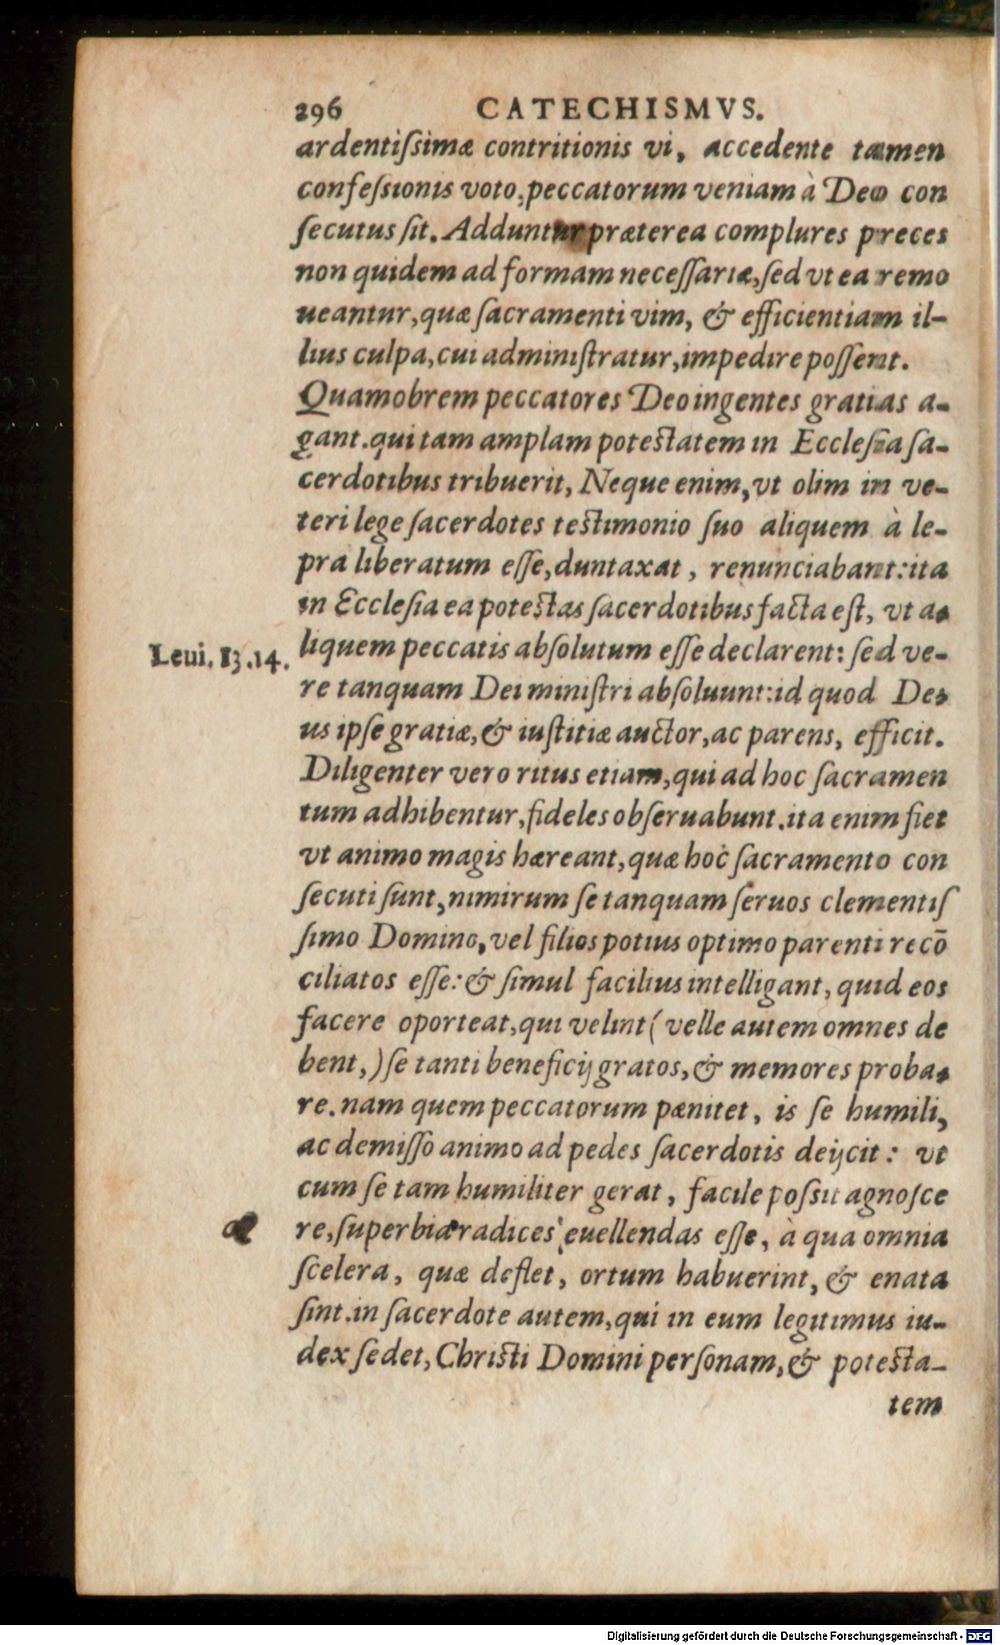 296 CATECHISMVS.
ardentiſsimæ contritionis vi, accedente tamen
confeſsionis voto, peccatorum veniam à Deo con
ſecutus ſit. Adduntur præterea complures preces
non quidem ad formam neceſſariæ, ſed vt ea remo
ueantur, quæ ſacramenti vim, & efficientiam il-
lius culpa, cui adminiſtratur, impedire poſſent.
Quamobrem peccatores Deo ingentes gratias a-
gant. qui tam amplam poteſtatem in Eccleſia ſa-
cerdotibus tribuerit, Neque enim, vt olim in ve-
teri lege ſacerdotes teſtimonio ſuo aliquem à le-
pra liberatum eſſe, duntaxat, renunciabant: ita
in Eccleſia ea poteſtas ſacerdotibus facta eſt, vt a-
Leui. 13.14. liquem peccatis abſolutum eſſe declarent: ſed ve-
re tanquam Dei miniſtri abſoluunt: id quod De-
us ipſe gratiæ, & iuſtitiæ auctor, ac parens, efficit.
Diligenter vero ritus etiam, qui ad hoc ſacramen
tum adhibentur, fideles obſeruabunt. ita enim fiet
vt animo magis hæreant, quæ hoc ſacramento con
ſecuti ſunt, nimirum ſe tanquam ſeruos clementiſ
ſimo Domino, vel filios potius optimo parenti recō
ciliatos eſſe: & ſimul facilius intelligant, quid eos
facere oporteat, qui velint (velle autem omnes de
bent,) ſe tanti beneficij gratos, & memores proba-
re. nam quem peccatorum pænitet, is ſe humili,
ac demiſſo animo ad pedes ſacerdotis deijcit: vt
cum ſe tam humiliter gerat, facile poſsit agnoſce
re, ſuperbiæ radices euellendas eſſe, à qua omnia
ſcelera, quæ deflet, ortum habuerint, & enata
ſint. in ſacerdote autem, qui in eum legitimus iu-
dex ſedet, Chriſti Domini perſonam, & poteſta-
tem
Digitalisierung gefördert durch die Deutsche Forschungsgemeinschaft - DFG